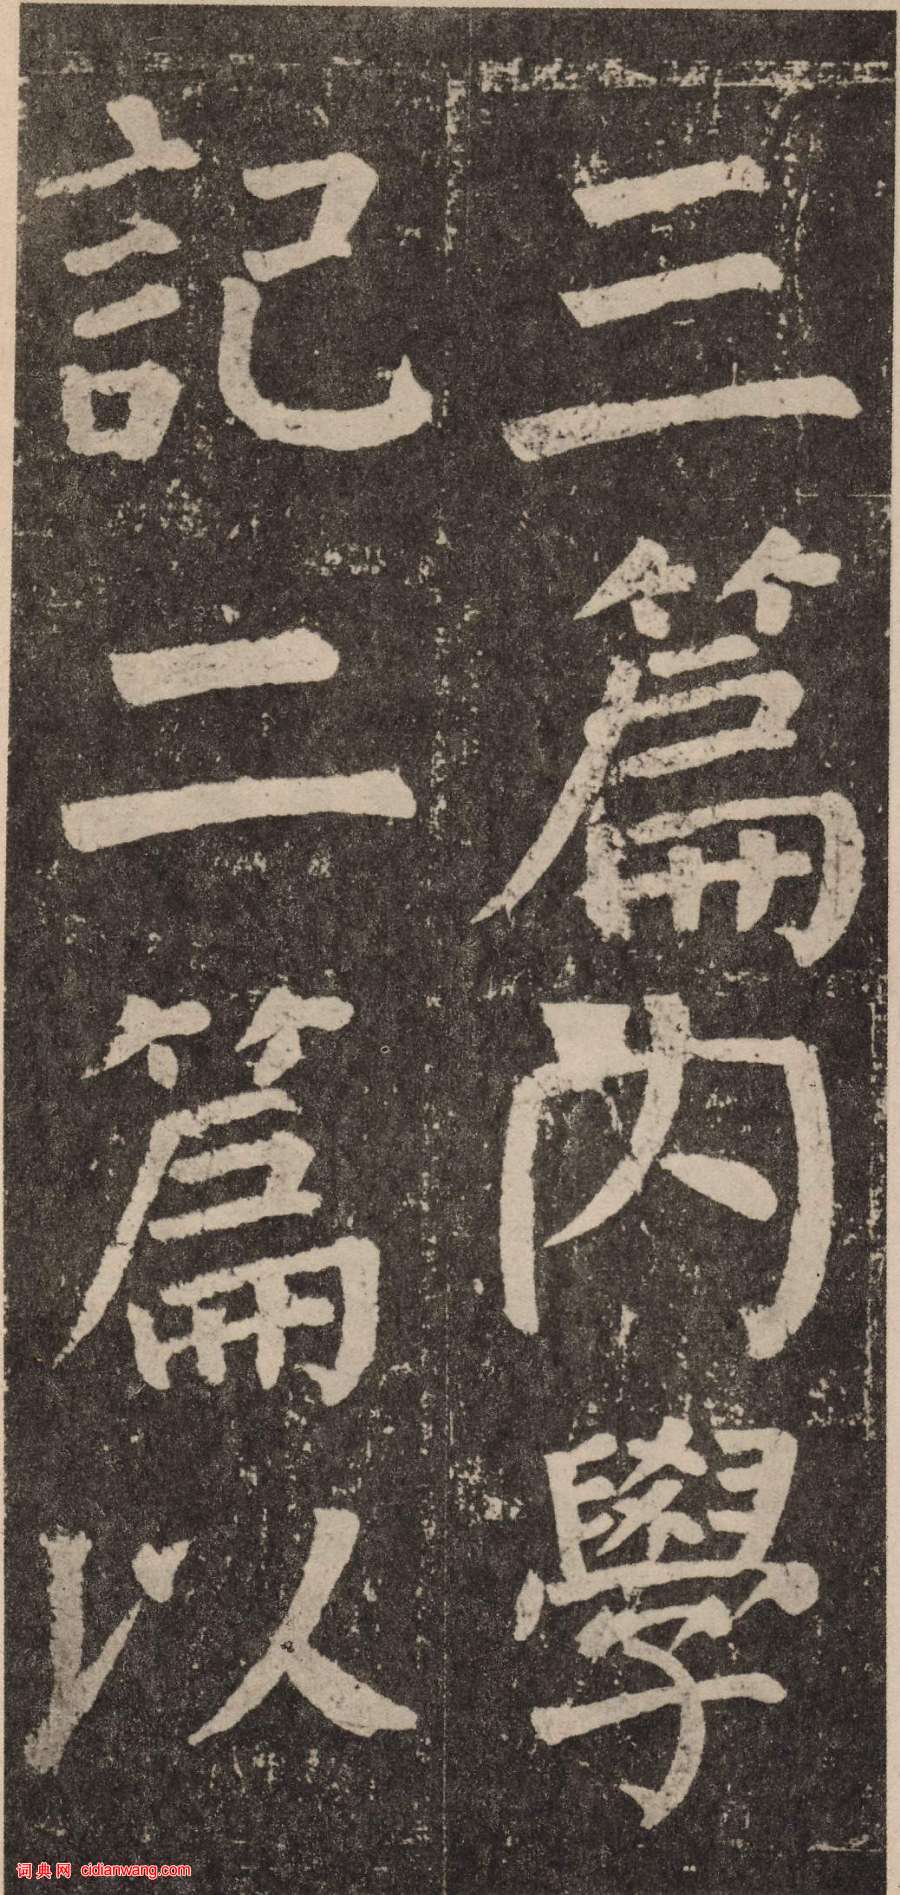 三篇内學
記二篇以
词典网 cidianwang.com